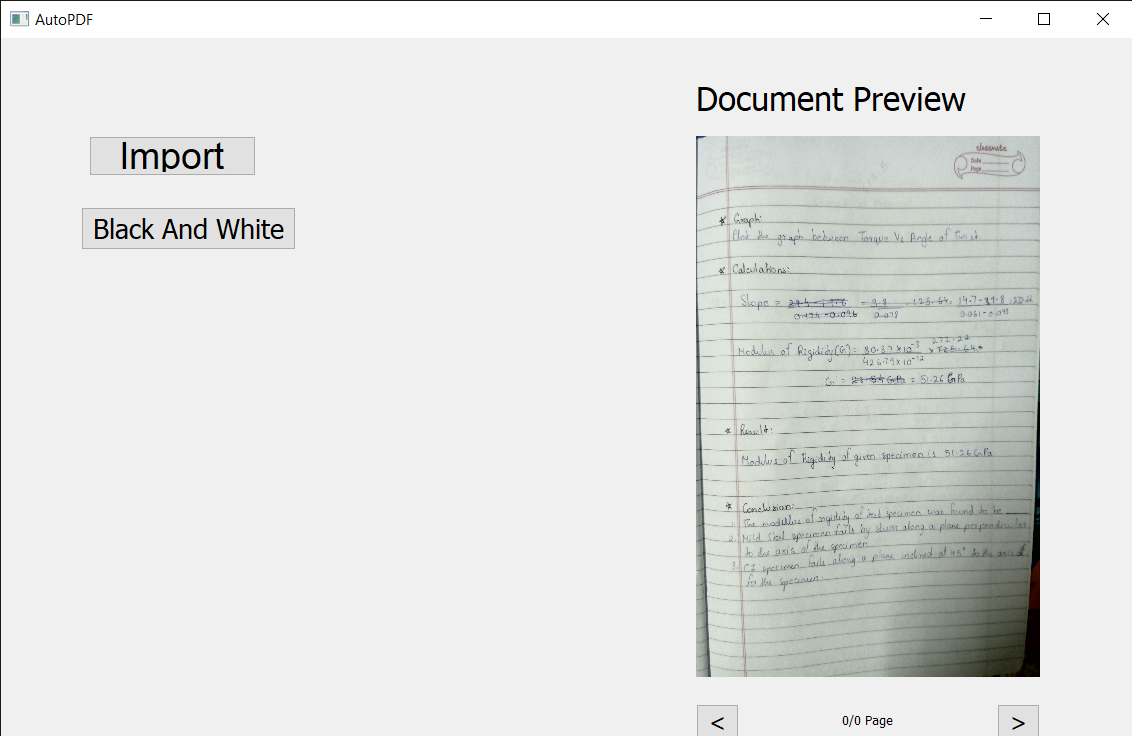 AutoPDF
Import
Black And White
Document Preview
classmate
Date
Page
* Graph:
Plot the graph between Torque Vs Angle of Twist.
* Calculations:
Slope = = 9.8 = 125.64. 14.7-9.8
0.078 0.061-0.0
Modulus of Rigidity (G) = 80.37×10⁻³ × 272.22
426.79×10⁻¹²
G = = 51.26 GPa
* Result:
Modulus of Rigidity of given specimen is 51.26 GPa
* Conclusion:
1. The modulus of rigidity of test specimen was found to be
2. Mild Steel specimen fails by shear along a plane perpendicular
to the axis of the specimen
3. CI specimen fails along a plane inclined at 45° to the axis of
for the specimen.
<
0/0 Page
>